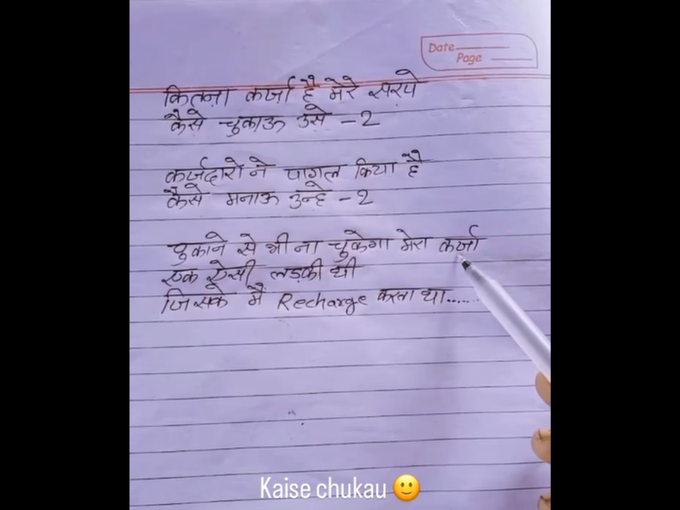 Date
Page
कितना कर्जा है मेरे सरपे
कैसे चुकाऊ उसे -2
कर्जदारो ने पागल किया है
कैसे मनाऊ उन्हे -2
चुकाने से भी ना चुकेगा मेरा कर्जा
एक ऐसी लड़की थी
जिसके मै Recharge करता था.....
Kaise chukau 🙂